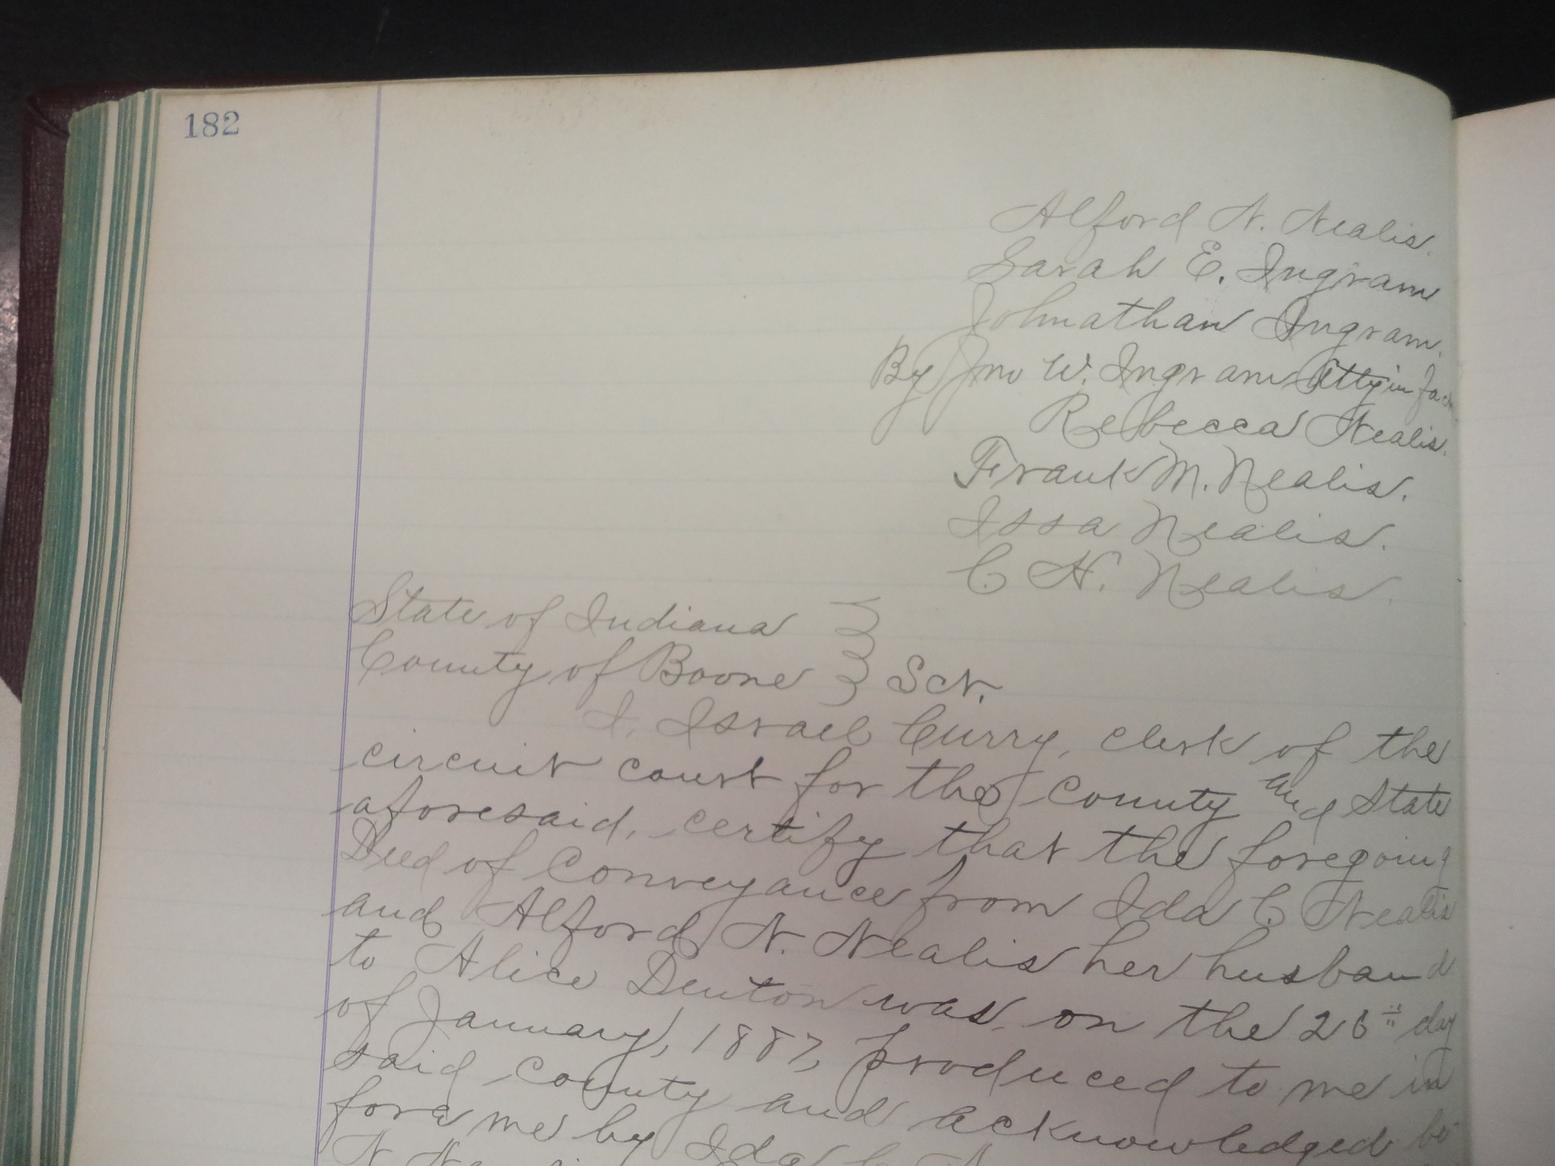 182
Alford N. Nealis.
Sarah E. Ingram
Johnathan Ingram.
By Jno W. Ingram Atty in fac
Rebecca Nealis.
Frank M. Nealis.
Issa Nealis.
C H. Nealis.
State of Indiana
County of Boone } Sct.
I, Israel Curry, clerk of the
circuit court for the county and State
aforesaid, certify that the foregoing
Deed of Conveyance from Ida C Nealis
and Alford N. Nealis her husband
to Alice Denton was on the 26th day
of January, 1887, produced to me in
said county and acknowledged be
fore me by Ida C